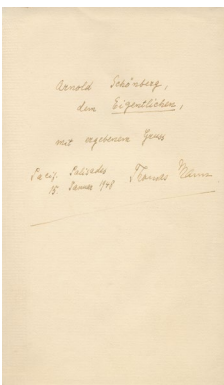 Arnold Schönberg,
dem Eigentlichen,
mit ergebenem Gruss
Pacif. Palisades
15. Januar 1948
Thomas Mann